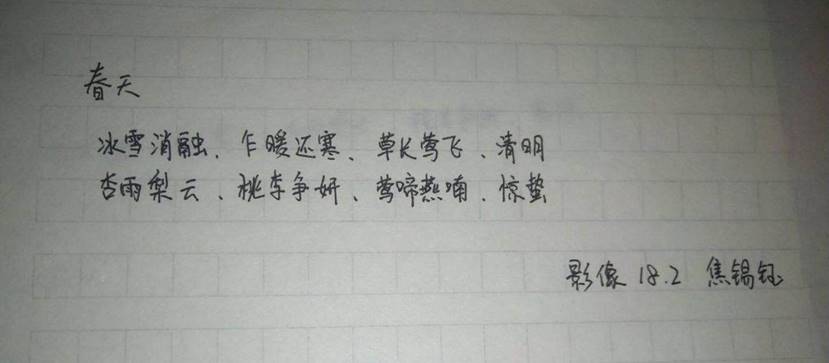 春天
冰雪消融、乍暖还寒、草长莺飞、清明
杏雨梨云、桃李争妍、莺啼燕喃、惊蛰
影像 18.2 焦锡钰